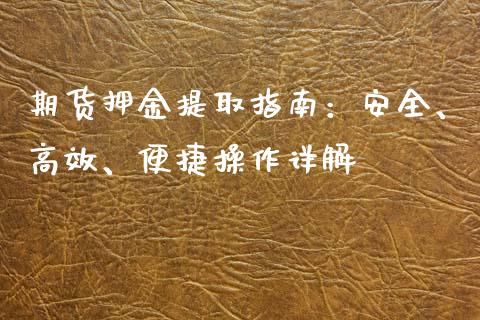 期货押金提取指南：安全、
高效、便捷操作详解